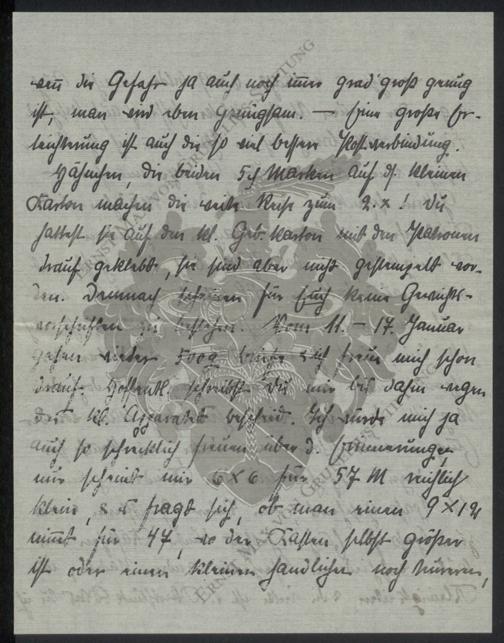 wenn die Gefahr ja auch noch immer grad' groß genug
ist, man wird eben genügsam. — Eine große Er-
leichterung ist auch die so viel bessere Postverbindung.
Häschen, die beiden 5 Marken auf d. kleinen
Karton machen die weite Reise zum 2. x! Du
hattest sie auf den kl. Geb. Karton mit den Patronen
drauf geklebt, sie sind aber nicht gestempelt wor-
den. Demnach scheinen für Euch keine Gewichts-
vorschriften zu bestehen. Vom 11. – 17. Januar
gehen wieder 500g Pakete & ich freue mich schon
drauf. Hoffentl. schreibst Du mir bis dahin wegen
des kl. Apparates bescheid. Ich würde mich ja
auch so schrecklich freuen über d. Erinnerungen
mir scheint nur 6 x 6 für 57 M reichlich
klein, & es fragt sich, ob man einen 9 x 12
nimmt für 47, wo der Kasten selbst größer
ist oder einen kleinen handlichen noch
ERNST MAX VON GRUNELIUS-STIFTUNG